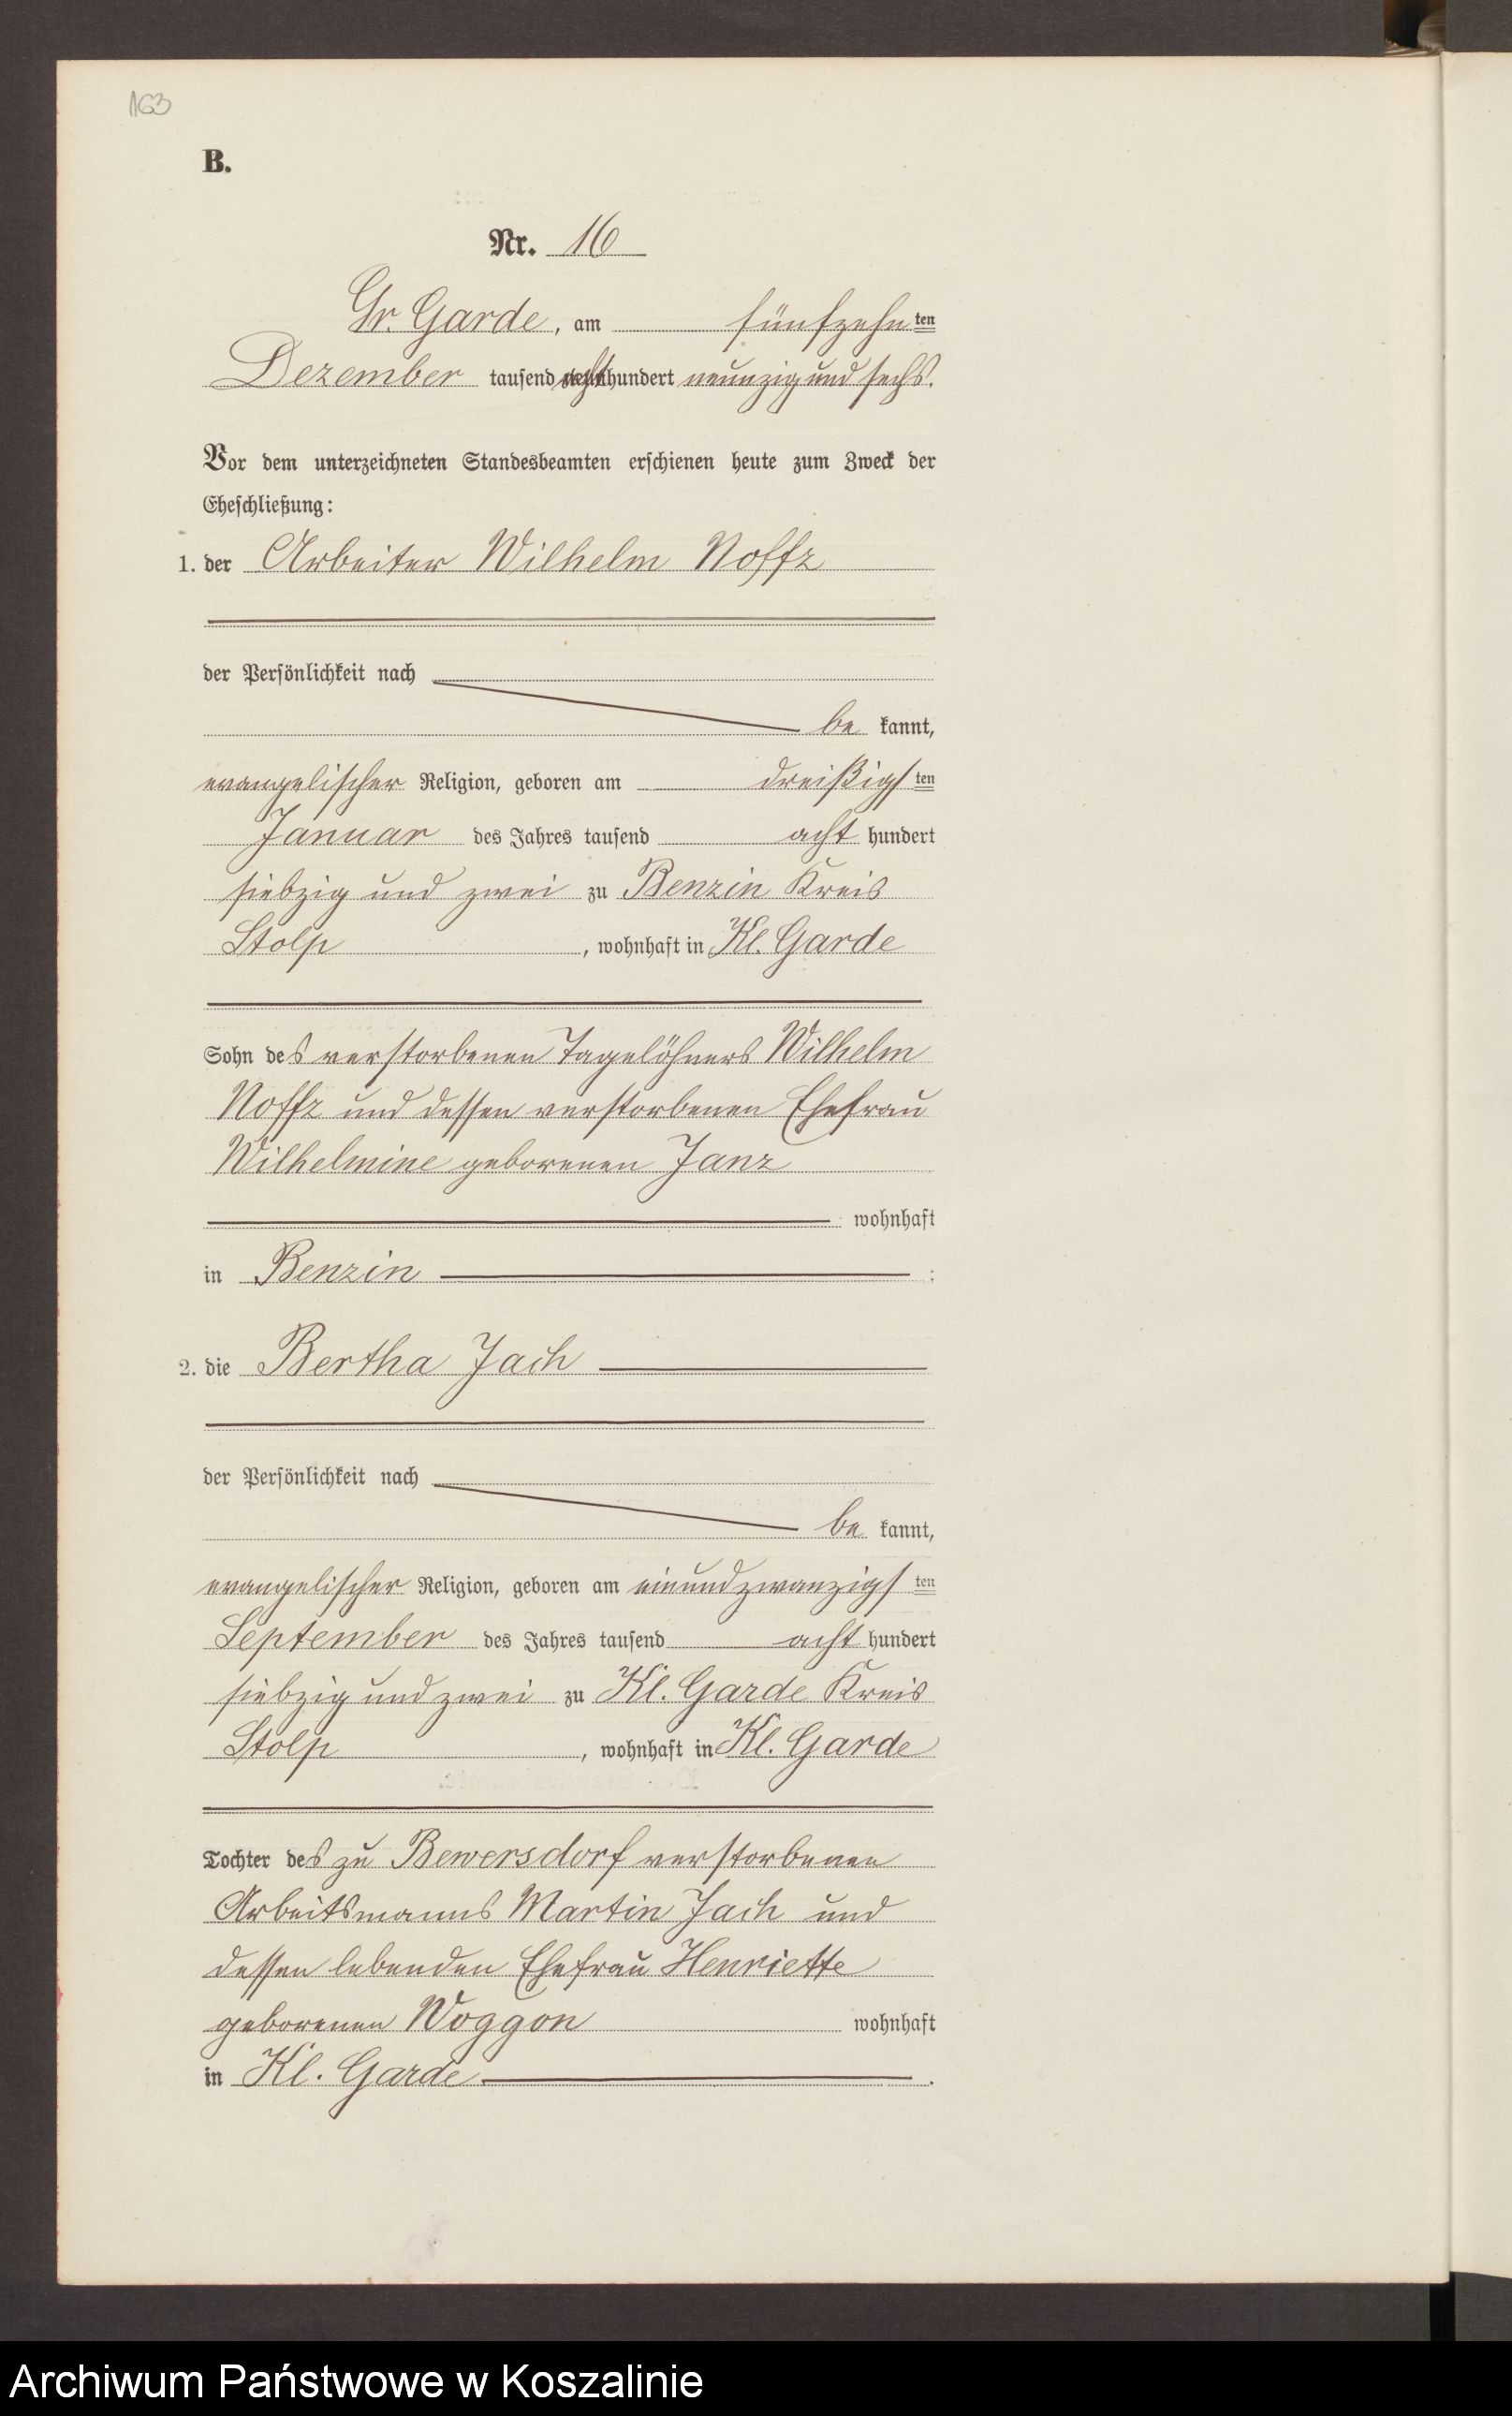 163
B.
Nr. 16
Gr. Garde, am fünfzehnten
Dezember tausend achthundert neunzig und sechs.
Vor dem unterzeichneten Standesbeamten erschienen heute zum Zweck der
Eheschließung:
1. der Arbeiter Wilhelm Noffz
der Persönlichkeit nach
be kannt,
evangelischer Religion, geboren am dreißigsten
Januar des Jahres tausend acht hundert
siebzig und zwei zu Benzin Kreis
Stolp, wohnhaft in Kl. Garde
Sohn des verstorbenen Tagelöhners Wilhelm
Noffz und dessen verstorbenen Ehefrau
Wilhelmine geborenen Janz
wohnhaft
in Benzin :
2. die Bertha Jach
der Persönlichkeit nach
be kannt,
evangelischer Religion, geboren am einundzwanzigsten
September des Jahres tausend acht hundert
siebzig und zwei zu Kl. Garde Kreis
Stolp, wohnhaft in Kl. Garde
Tochter des zu Bewersdorf verstorbenen
Arbeitsmanns Martin Jach und
dessen lebenden Ehefrau Henriette
geborenen Woggon wohnhaft
in Kl. Garde .
Archiwum Państwowe w Koszalinie